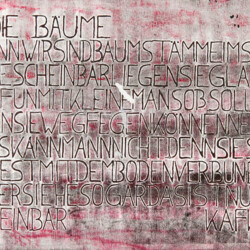 IE BÄUME
NNWIRSINDBAUMSTÄMMEIMS
ESCHEINBARLIEGENSIEGLA
NSIEWEGFEGENKÖNNEN
SKANNMANNICHTDENNSIE
ESTMITDEMBODENVERBUN
ERSIEHESOGARDASISTNU
EINBAR" KAF